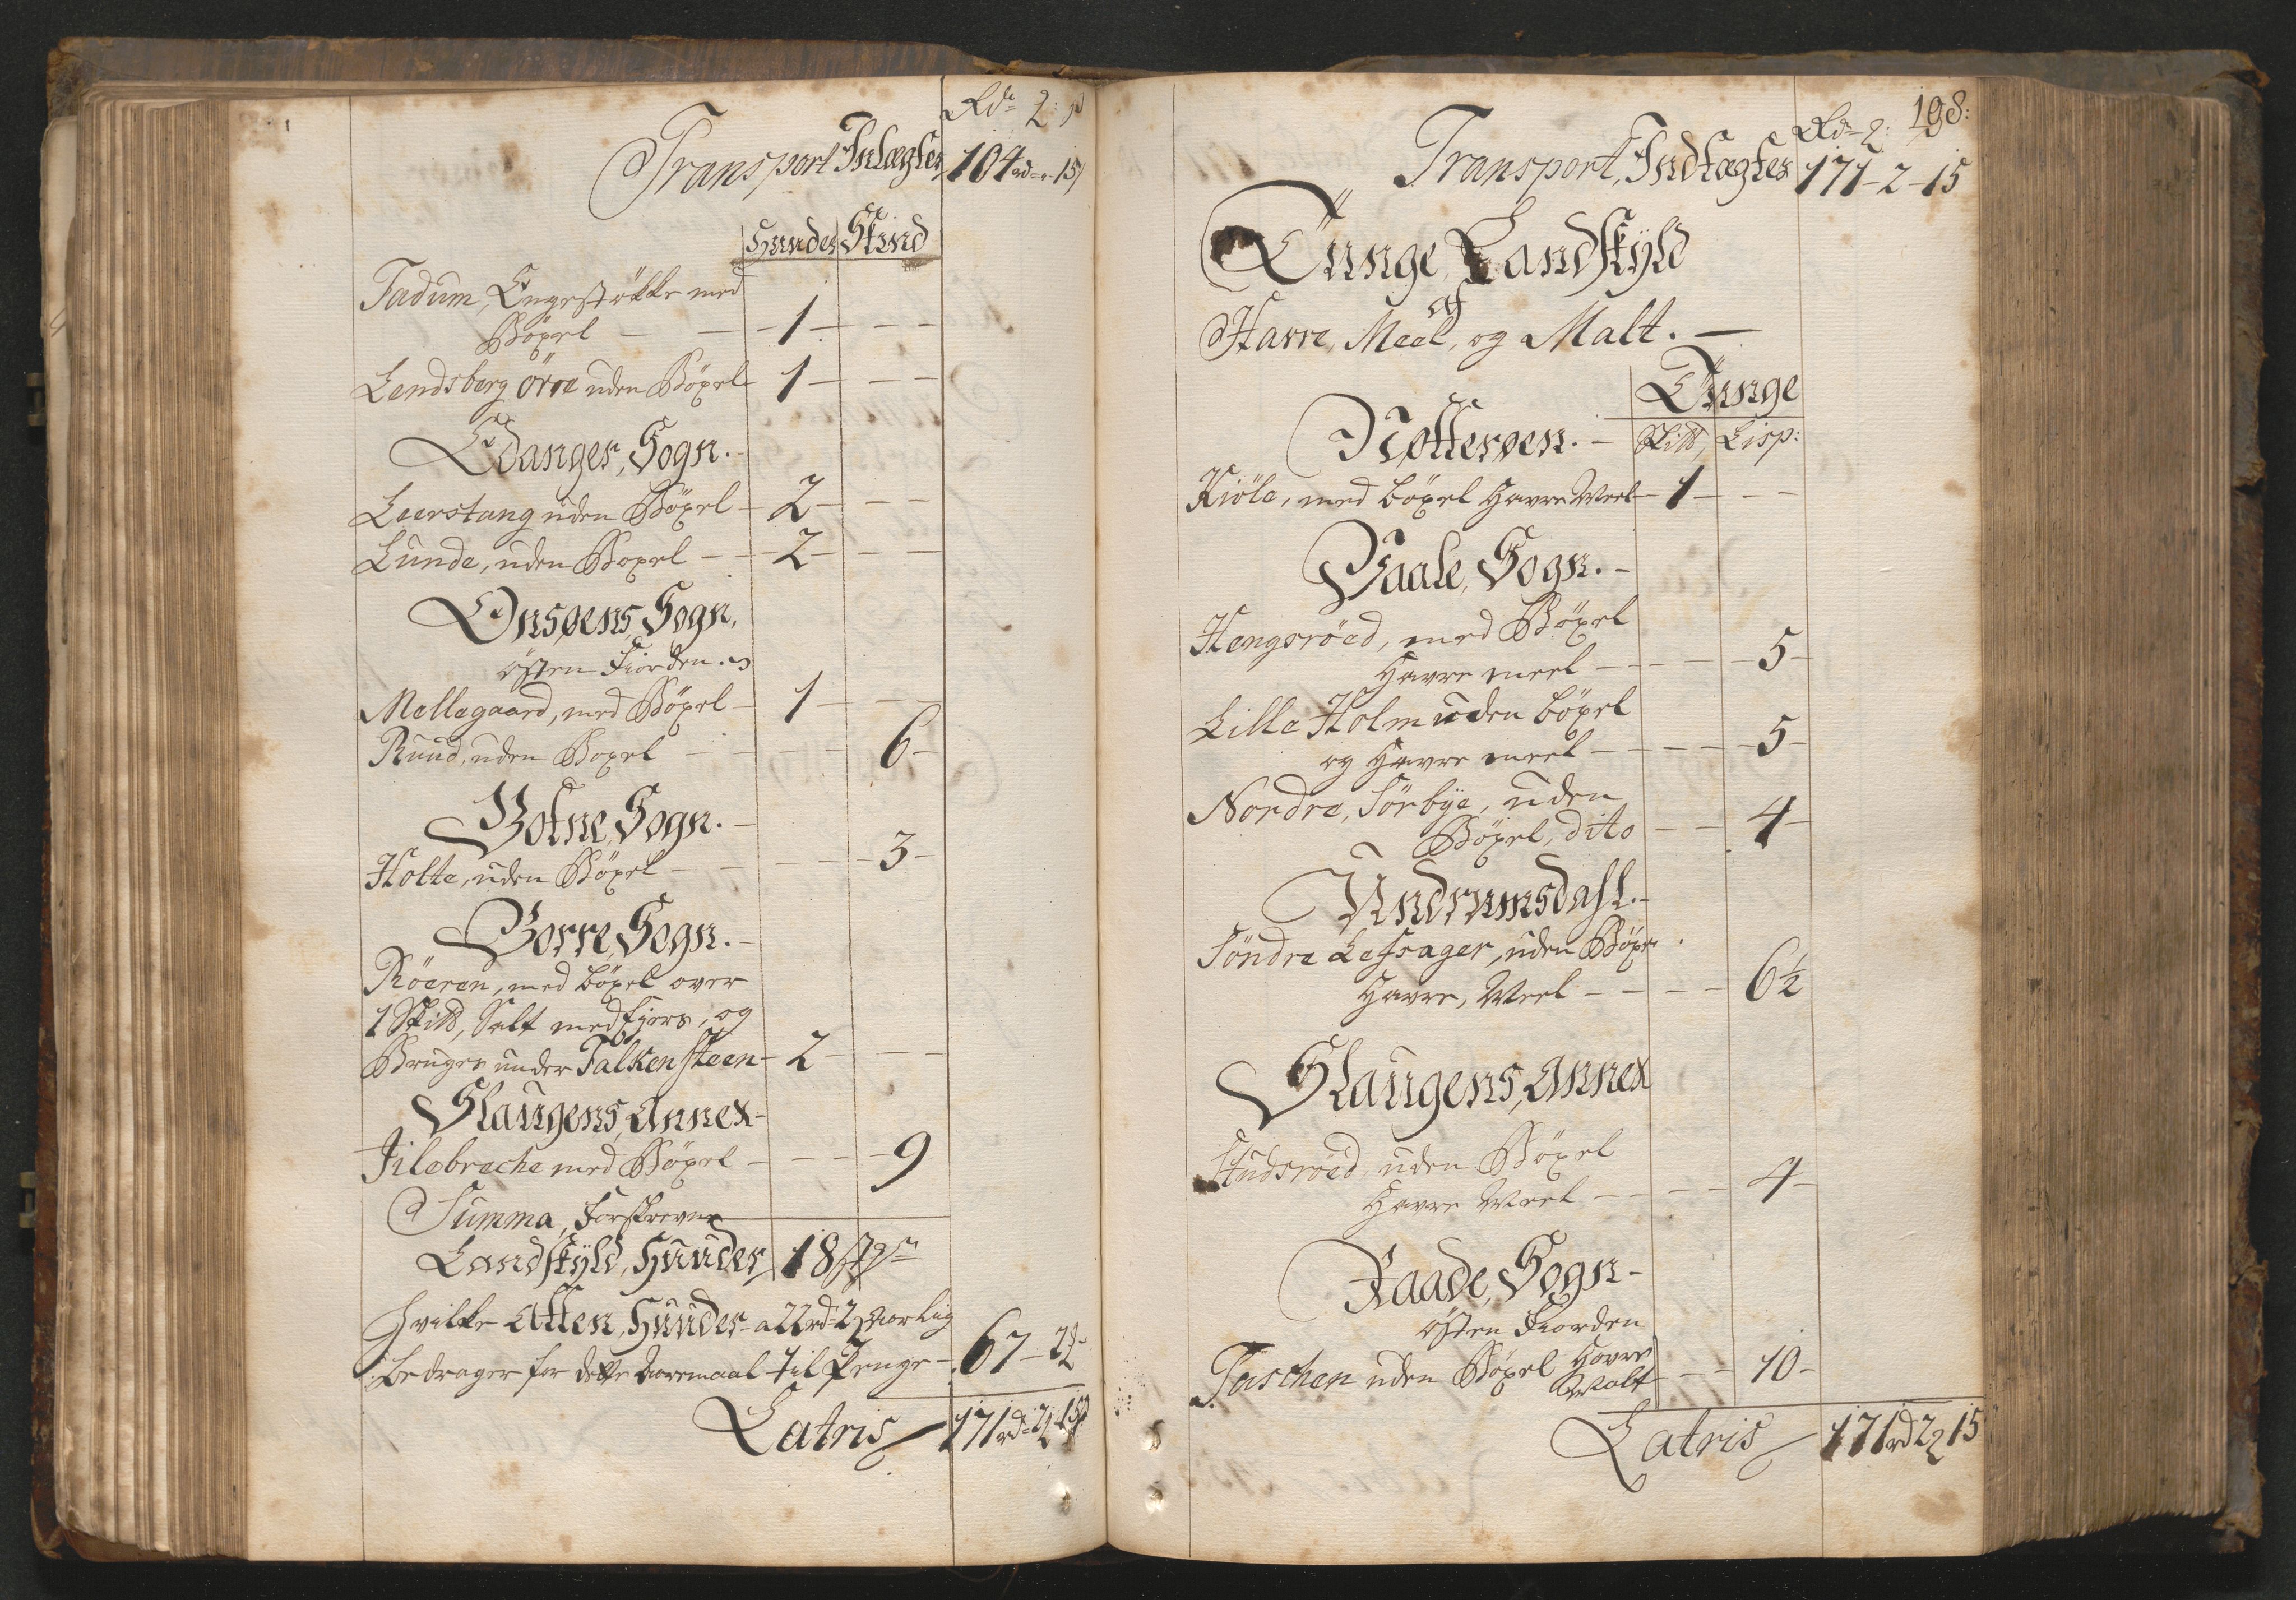 Rdr 2: ß
Transport Indtægter 104rd - " - 15ß
Huuder Skind
Tadum, Engestökke med
Böxel — — - 1 - - - -
Lendsberg örre uden Böxel - 1 - - -
Edanger, Sogn.
Leerstang uden Böxel - 2 - - -
Lunde, uden Boxel - - - 2 - - -
Onsøens, Sogn,
östen Fiorden.
Mellegaard, med Böxel - 1 - - -
Ruud, uden Boxel - - - - 6 -
Botne, Sogn. -
Holte, uden Böxel - - - - 3 -
Borre, Sogn. -
Röeren, med böxel over
1 Skild, Salt med hers, og
Bruges under Falkensteen - 2 - - -
Slaugens, Annex -
Jilebreche med Böxel - - - - 9
Summa, Forskrevne
Landskyld, Huuder 18
Hvilke Atten, Huuder
Bedrager for dette Aaremaal til Penge - 67 - 2
Latris 171rd - 2 - 15ß
198:
Rdr - 2:
Transport, Indtægter 171 - 2 - 15
Tunge Landskyld
af
Havre, Meel, og Malt. —
Tunge
Nøtterøen. - Skild, Lisp:
Kiöle, med böxel Havre Meel - 1 - - -
Vaale, Sogn. -
Hengsröed, med Böxel
Havre meel - - - - 5 -
Lille Holm uden böxel
og Havre meel - - - - 5 -
Nordre, Sörbye, uden
Böxel, dito - - 4 -
Undrumsdahl. -
Söndre Lefsager, uden Böxel
Havre, Meel - - - - 6½
Slaugens, Annex
Studsröed, uden Böxel
Havre Meel - - - - 4 -
Raade, Sogn -
östen Fiorden
Taschen uden Böxel Havre
Malt - - - 10 -
Latris 171rd 2 15